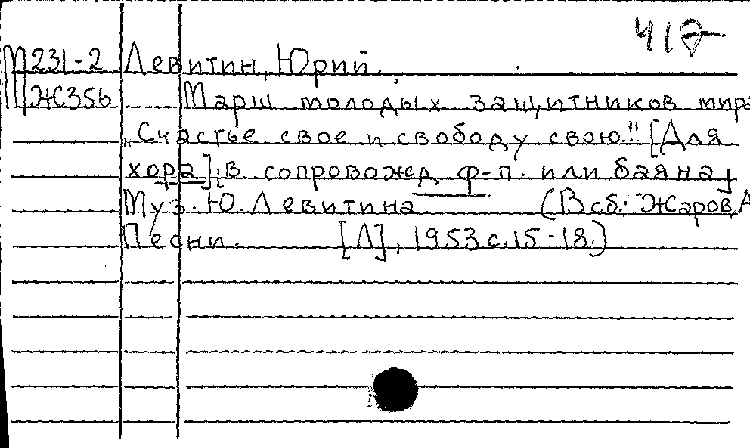 417
М231-2 Левитин, Юрий.
Ж356 Марш молодых защитников мира
„Счастье свое и свободу свою." [Для
хора] [в сопровожд ф-п. или баяна]
Муз. Ю. Левитина (В сб.: Жаров, А
Песни. [Л], 1953 с. 15-18.)